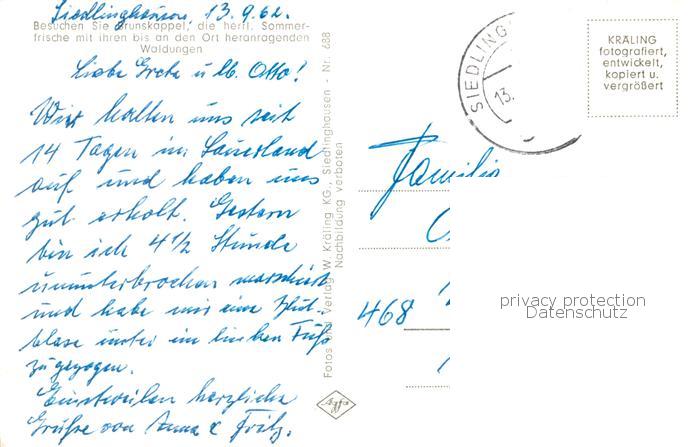 Siedlinghausen, 13.9.62.
Besuchen Sie Brunskappel, die herrl. Sommer-
frische mit ihren bis an den Ort heranragenden
Waldungen
Liebe Greta u. lb. Otto!
Wir halten uns seit
14 Tagen im Sauerland
auf und haben uns
gut erholt. Gestern
bin ich 4 1/2 Stunde
ununterbrochen marschiert
und habe mir eine Blut-
blase unter im linken Fuß
zugezogen.
Einstweilen herzliche
Grüße von Anna & Fritz.
Fotos und Verlag W. Kräling KG., Siedlinghausen - Nr. 688
Nachbildung verboten
Agfa
SIEDLING
13.
KRÄLING
fotografiert,
entwickelt,
kopiert u.
vergrößert
Familie
468
privacy protection
Datenschutz